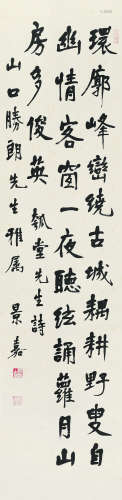 環廓峰巒繞古城耦耕野叟自
幽情客窗一夜聽絃誦蘿月山
房多俊英 瓠堂先生詩
山口勝朗先生雅属 景嘉